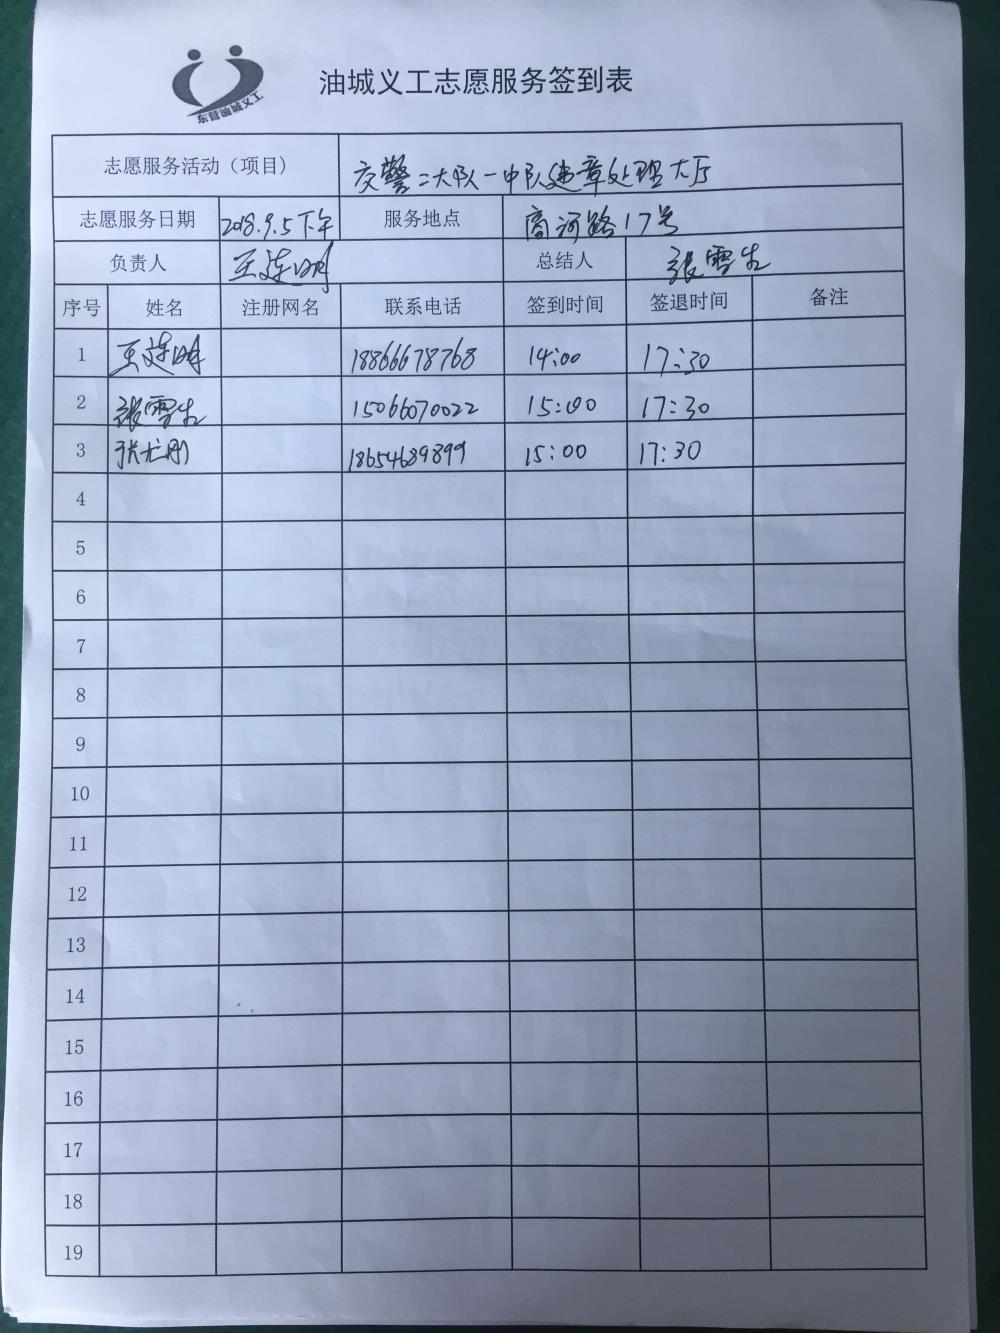 东营油城义工
油城义工志愿服务签到表
志愿服务活动（项目） 交警二大队一中队违章处理大厅
志愿服务日期 2018.9.5下午 服务地点 商河路17号
负责人 王连明 总结人 张雪生
序号 姓名 注册网名 联系电话 签到时间 签退时间 备注
1 王连明 18866678768 14:00 17:30
2 张雪生 15066070022 15:00 17:30
3 张尤刚 18654689899 15:00 17:30
4
5
6
7
8
9
10
11
12
13
14
15
16
17
18
19